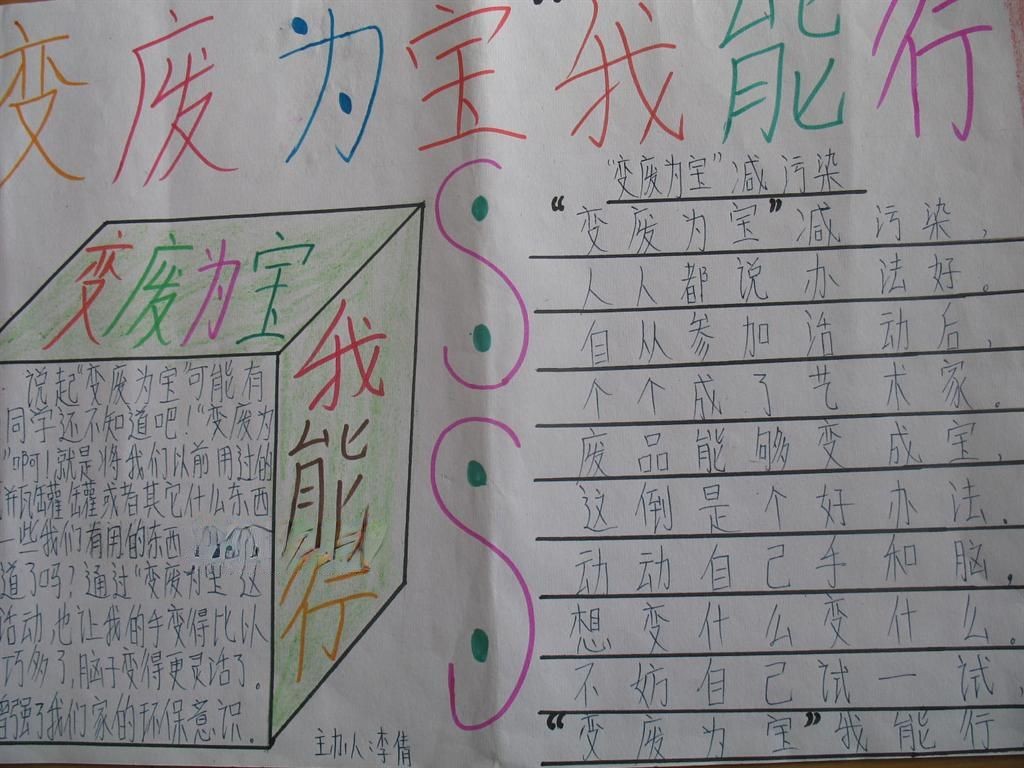 变废为宝"我能行
变废为宝
我能行
说起"变废为宝"可能有
同学还不知道吧!"变废为
"啊!就是将我们以前用过的
瓶罐罐或者其它什么东西
一些我们有用的东西
道了吗?通过"变废为宝"这
活动,也让我的手变得比以
巧多了,脑子变得更灵活了。
增强了我们家的环保意识。
主办人:李倩
"变废为宝"减污染
"变废为宝"减污染,
人人都说办法好。
自从参加活动后,
个个成了艺术家。
废品能够变成宝,
这倒是个好办法。
动动自己手和脑,
想变什么变什么。
不妨自己试一试,
"变废为宝"我能行